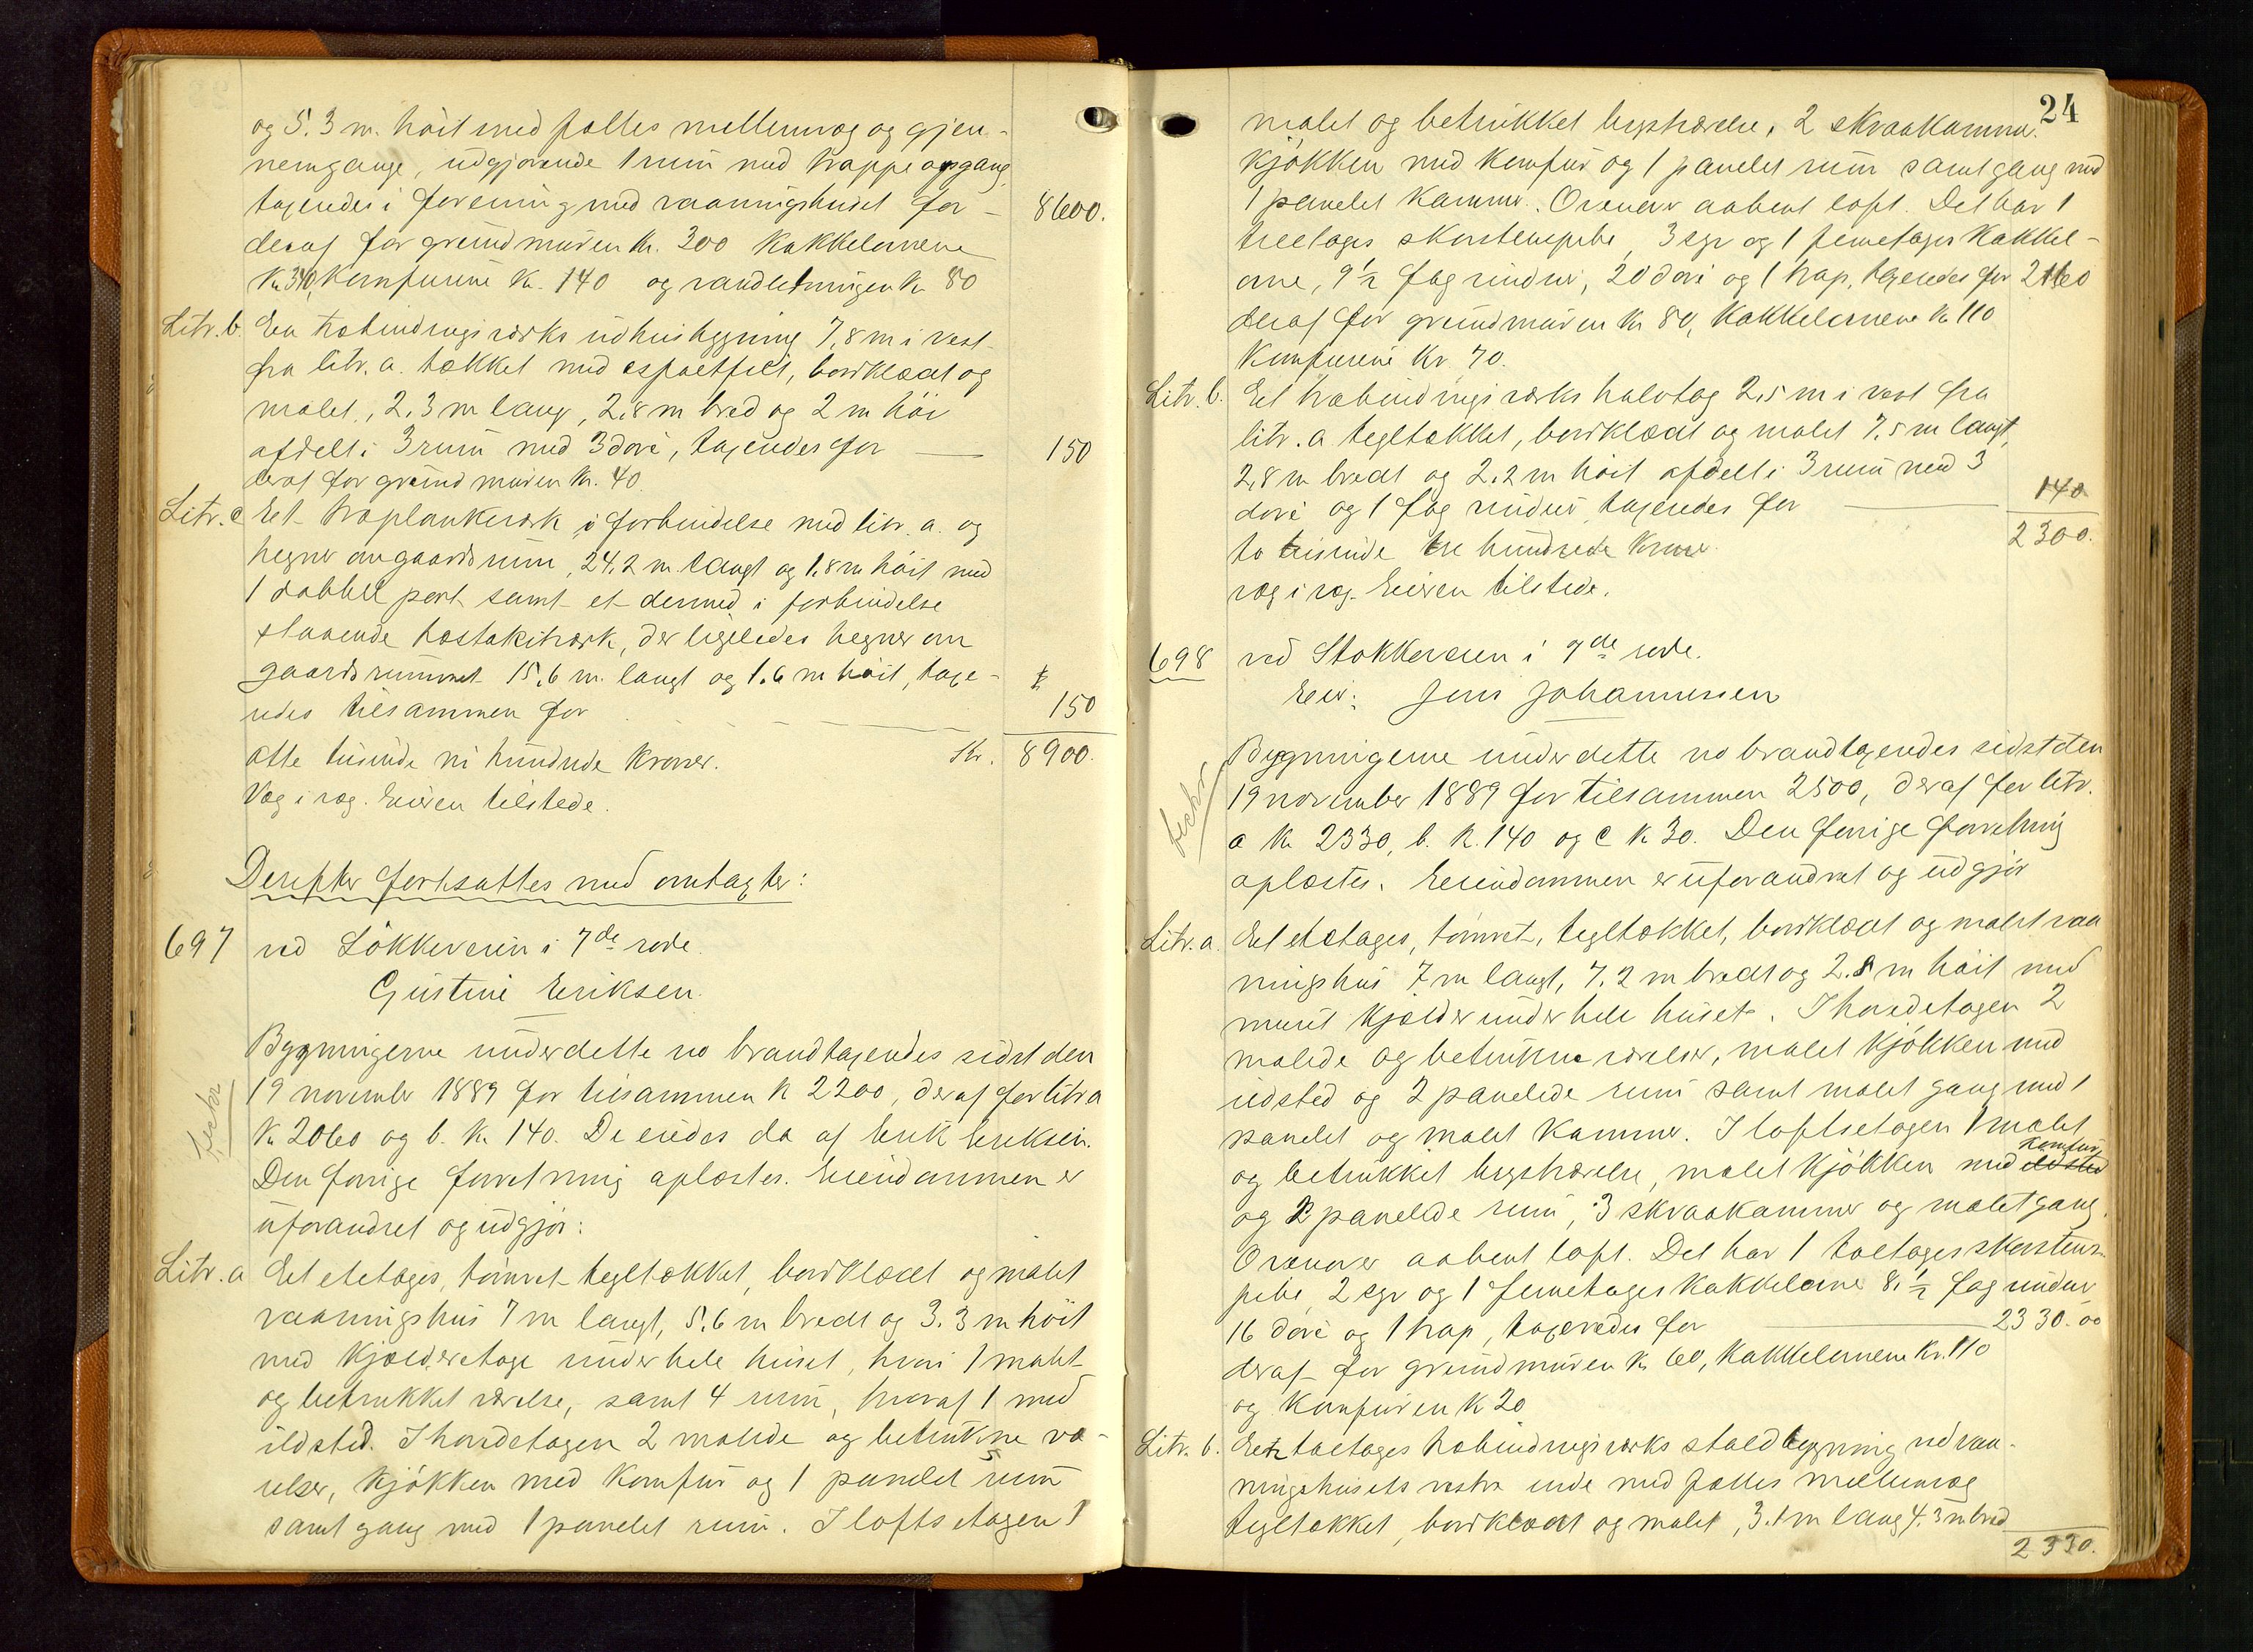 og 5.3 m. höit med fælles mellemvæg og gjen-
nemgange, udgjørende 1 rum med trappeopgang
taxeredes i forening med vaaningshuset for – 8600.
deraf for grundmuren Kr. 300 Kakkelovnene
Kr 340, Komfurene Kr. 140 og vandledningen Kr 80
Litr. b. En træbindingsværks udhusbygning 7,8 m i vest
fra litr. a. tækket med asfaltfilt, bordklædt og
malet, 2,3 m lang, 2,8 m bred og 2 m höi
afdelt i 3 rum med 3 döre, taxeredes for — 150
deraf for grundmuren Kr. 40.
Litr. c Et træplankeværk i forbindelse med litr. a. og
hegner om gaardsrum, 24,2 m. langt og 1,8 m höit med
1 dobbelt port samt et dermed i forbindelse
staaende træstakitværk, der ligeledes hegner om
gaardsrummet 15,6 m. langt og 1.6 m höit, taxe-
redes tilsammen for — 150
otte tusinde ni hundrede kroner. Kr. 8900.
Væg i væg. Eieren tilstede.
Derefter fortsattes med omtaxter:
697 ved Lökkeveien i 7de rode.
Gustine Eriksen.
Bygningerne under dette no brandtaxeredes sidst den
19 november 1889 for tilsammen K 2200, deraf for litr a
Kr. 2060 og b. Kr. 140. De eiedes da af Erik Eriksen.
Den forrige forretning oplæstes. Eiendommen er
uforandret og udgjör:
Litr. a Et etetages, tömret tegltækket, bordklædt og malet
vaaningshus 7 m langt, 5.6 m bredt og 3.3 m höit
med Kjælderetage under hele huset, hvori 1 malet
og betrukket værelse, samt 4 rum, hvoraf 1 med
ildsted. I hovedetagen 2 malede og betrukne væ-
relser, kjökken med Komfur og 1 panelet rum
samt gang med 1 panelet rum. I loftsetagen 1
24
malet og betrukket kvistværelse, 2 skraakammer.
Kjökken med Komfur og 1 panelet rum samt gang med
1 panelet Kammer. Ovenover aabent loft. Det har 1
treetages skorstenspibe, 3 egr og 1 femetages Kakkel-
ovne, 9 1/2 fag vinduer, 20 döre og 1 trap, taxeredes for 2160
deraf for grundmuren Kr 80, Kakkelovnene Kr 110
Komfurene Kr. 70.
Litr. b. Et træbindingsværks halvtag 2,5 m i vest fra
litr. a tegltækket, bordklædt og malet 7,5 m langt,
2,8 m bredt og 2.2 m höit afdelt i 3 rum med 3
döre og 1 fag vinduer, taxeredes for — 140
to tusinde tre hundrede kroner. 2300.
væg i væg. Eieren tilstede.
698 ved Stokkeveien i 7de rode.
Eier: Jens Johannessen
Bygningerne under dette no brandtaxeredes sidst den
19 november 1889 for tilsammen 2500, deraf for litr.
a Kr 2330, b. K. 140 og c K 30. Den forrige forretning
oplæstes. Eiendommen er uforandret og udgjör
Litr. a. Et etetages, tömret, tegltækket, bordklædt og malet vaa
ningshus 7 m langt, 7.2 m bredt og 2.8 m höit med
muret Kjælder under hele huset. I hovedetagen 2
malede og betrukne værelser, malet Kjökken med
ildsted og 2 panelede rum samt malet gang med 1
panelet og malet Kammer. I loftsetagen 1 malet
og betrukket kvistværelse, malet Kjökken med ildsted Komfur
og 2 panelede rum, 3 skraakammer og malet gang.
Ovenover aabent loft. Det har 1 toetages skorstens-
pibe, 2 egr og 1 femetages Kakkelovne 8 1/2 fag vinduer
16 döre og 1 trap, taxeredes for — 2330.00
deraf for grundmuren Kr 60, Kakkelovnene Kr. 110
og Komfuren K 20
Litr. b. En toetages træbindingsværks staldbygning ved vaa-
ningshusets vestre ende med fælles mellemvæg
tegltækket, bordklædt og malet, 3.1 m lang 4.3 m bred
2330.